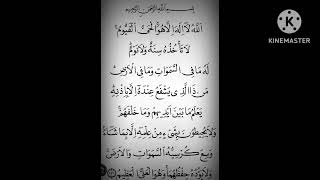 بسم الله الرحمن الرحيم
اَللّٰهُ لَآ اِلٰهَ اِلَّا هُوَ اَلْحَیُّ الْقَیُّوْمُ
لَا تَاْخُذُهٗ سِنَةٌ وَّلَا نَوْمٌ
لَهٗ مَا فِی السَّمٰوٰتِ وَمَا فِی الْاَرْضِ
مَنْ ذَا الَّذِیْ یَشْفَعُ عِنْدَهٗٓ اِلَّا بِاِذْنِهٖ
یَعْلَمُ مَا بَیْنَ اَیْدِیْهِمْ وَمَا خَلْفَهُمْ
وَلَا یُحِیْطُوْنَ بِشَیْءٍ مِّنْ عِلْمِهٖٓ اِلَّا بِمَا شَآءَ
وَسِعَ كُرْسِیُّهُ السَّمٰوٰتِ وَالْاَرْضَ
وَلَا یَئُوْدُهٗ حِفْظُهُمَا وَهُوَ الْعَلِیُّ الْعَظِیْمُ
KINEMASTER